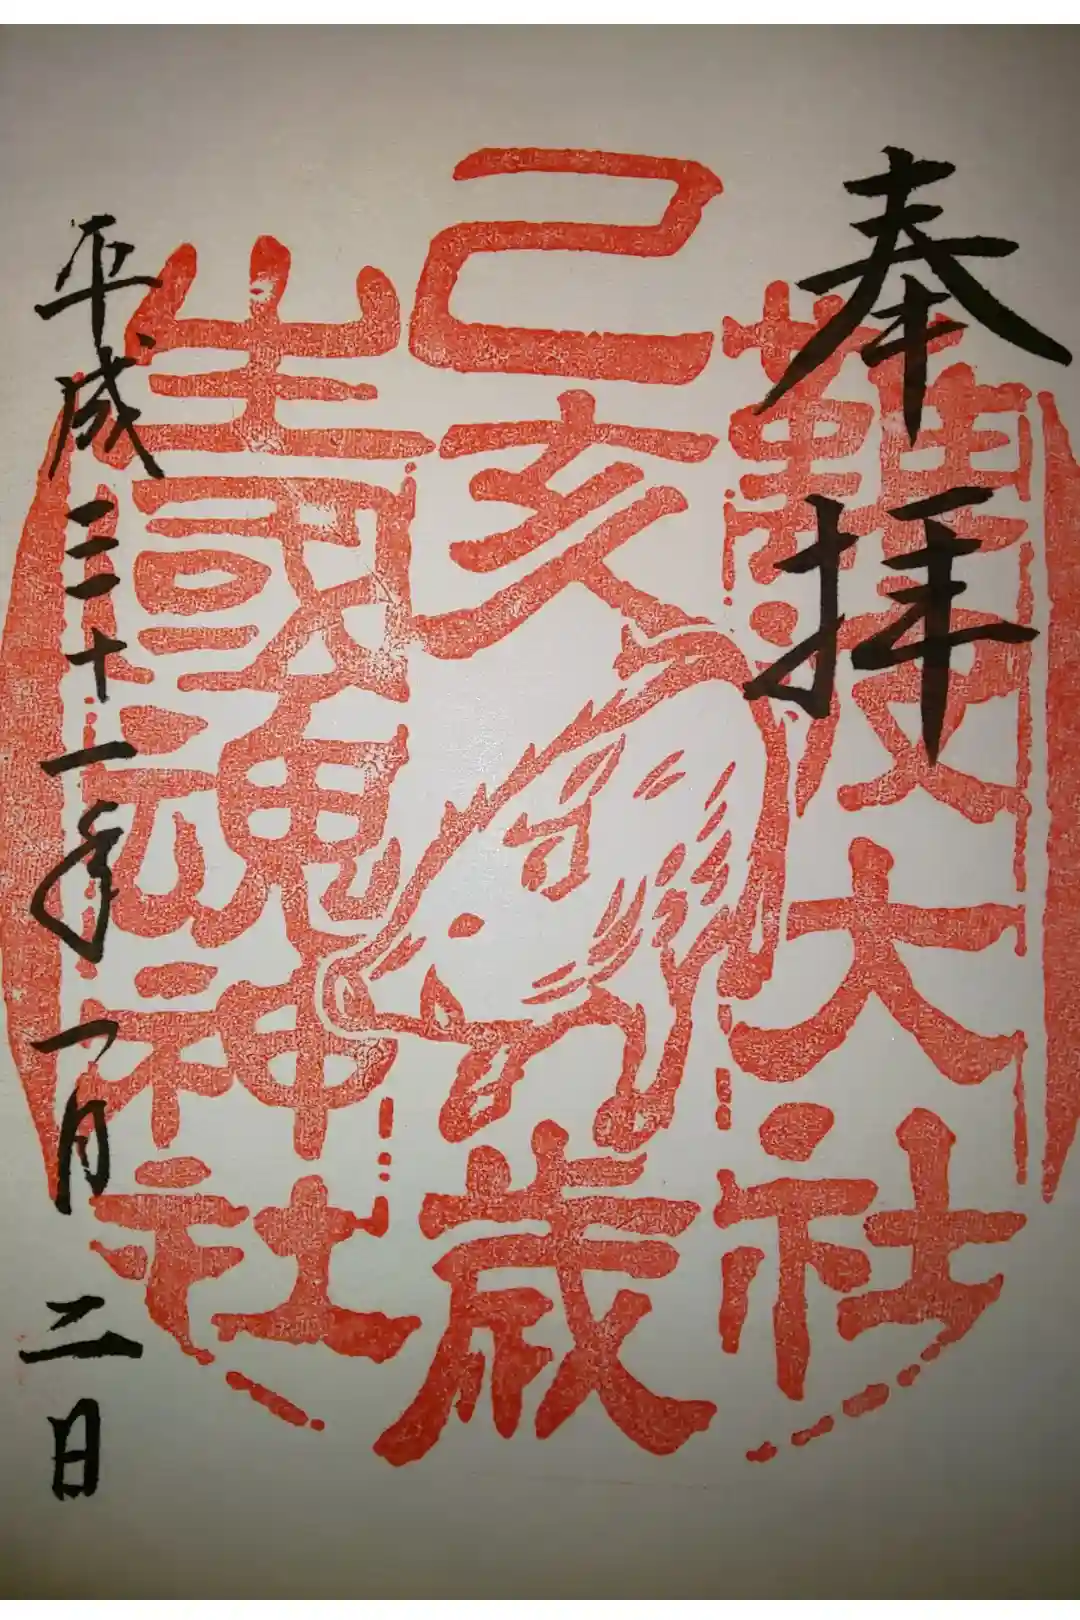 奉拝
難波大社
己亥歳
生國魂神社
平成三十一年一月二日